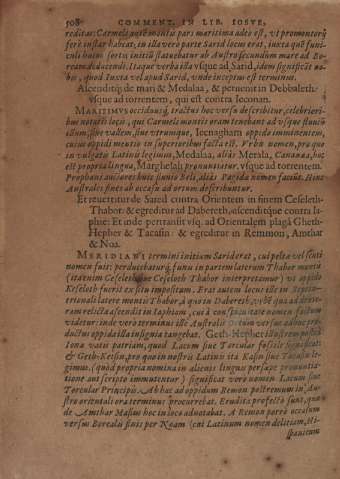 508 COMMENT. IN LIB. IOSVE,
reditar: Carmeli autem montis pars maritima adeo est, vt promontorij
fere instar habeat; in illa vero parte Sarid locus erat, iuxta quē funi-
culi huius sortis initiū statuebatur ab Austro secundum mare ad Bo-
ream deducendi. Itaque verba illa vsque ad Sarid, idem significāt no-
bis, quod Iuxta vel apud Sarid, vnde inceptus est terminus.
Ascenditq; de mari & Medalaa, & peruenit in Debbaleth
vsque ad torrentem, qui est contra Ieconan.
MARITIMVS occiduusq́; tractus hoc versu describitur, celebriori-
bus notatis locis, qui Carmeli montis oram tenebant ad vsque
siue vallem, siue vtrumque, Iecnagham oppido imminentem,
cuius oppidi mentio in superioribus facta est. Vrbis nomen, pro quo
in vulgatis Latinis legimus, Medalaa, alijs Merala, Cananæa, hoc
est propria lingua, Marghelah pronuntiatur. vsque ad torrentem.
Prophani auctores huic fluuio Beli, alias Pagida nomen faciūt. Hinc
Australes fines ab occasu ad ortum describuntur.
Et reuertitur de Sared contra Orientem in finem Ceseleth-
Thabor: & egreditur ad Dabereth, ascenditque contra Ia-
phie: Et inde pertransit vsq; ad Orientalem plagā Gheth-
Hepher & Tacasin: & egreditur in Remmon, Amthar
& Noa.
MERIDIANI termini initium Sarid erat, cui postea vel
nomen fuit: perducebaturq́; funis in partem laterum Thabor montis
(ita enim Ceseleth seu Cesloth Thabor interpretamur) vt oppido
Keseloth fuerit impositum. Erat autem locus ille in Septen-
trionali latere montis Thabor, à quo in Dabereth, vrbē
ram relicta ascendit in Iaphiem, cui à nomen factum
videtur: inde vero terminus ille Australis versus hac
ductus oppida illa insignia tangebat, Geth-Hepher
Iona vatis patriam, quod Lacum siue Torcular fossile significat:
& Geth-Ketsin, pro quo in nostris Latinis ita Kasin siue Tacasin le-
gimus. (quod propria nomina in alienis linguis persæpe pronuntia-
tione aut scripto immutentur) significat vero nomen Lacum siue
Torcular Principis. Ab hac ad oppidum Remon postremum in Au-
stro orientali ora terminus procurrebat. Erudita profectò sunt, quæ
de Amthar Masius hoc in loco adnotabat. A Remon porrò occasum
versus Borealis finis per Noam (cui Latinum nomen delitiam, Hi-
spanicum